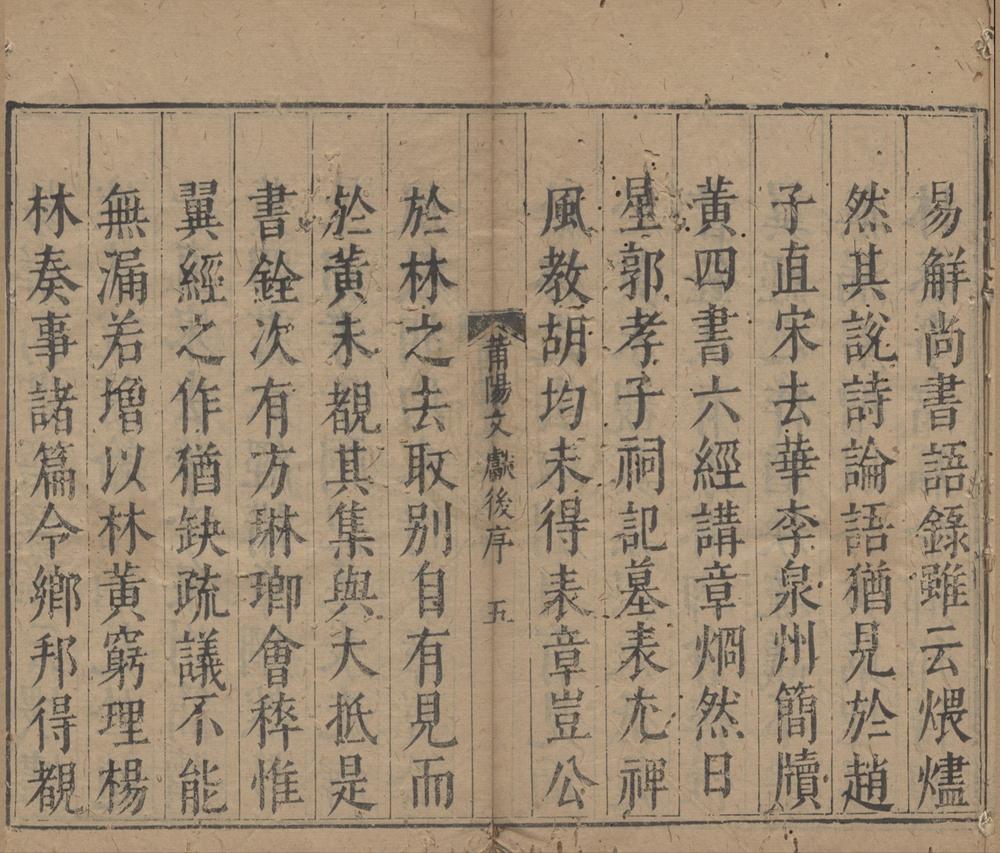 易解尚書語錄雖云煨燼
然其說詩論語猶見於趙
子直宋去華李泉州簡牘
黃四書六經講章炳然日
星郭孝子祠記墓表尤禆
風教胡均未得表章豈公
莆陽文獻後序 五
於林之去取别自有見而
於黃未覩其集與大抵是
書銓次有方琳瑯會稡惟
翼經之作猶缺疏議不能
無漏若增以林黃窮理楊
林奏事諸篇令鄉邦得覩